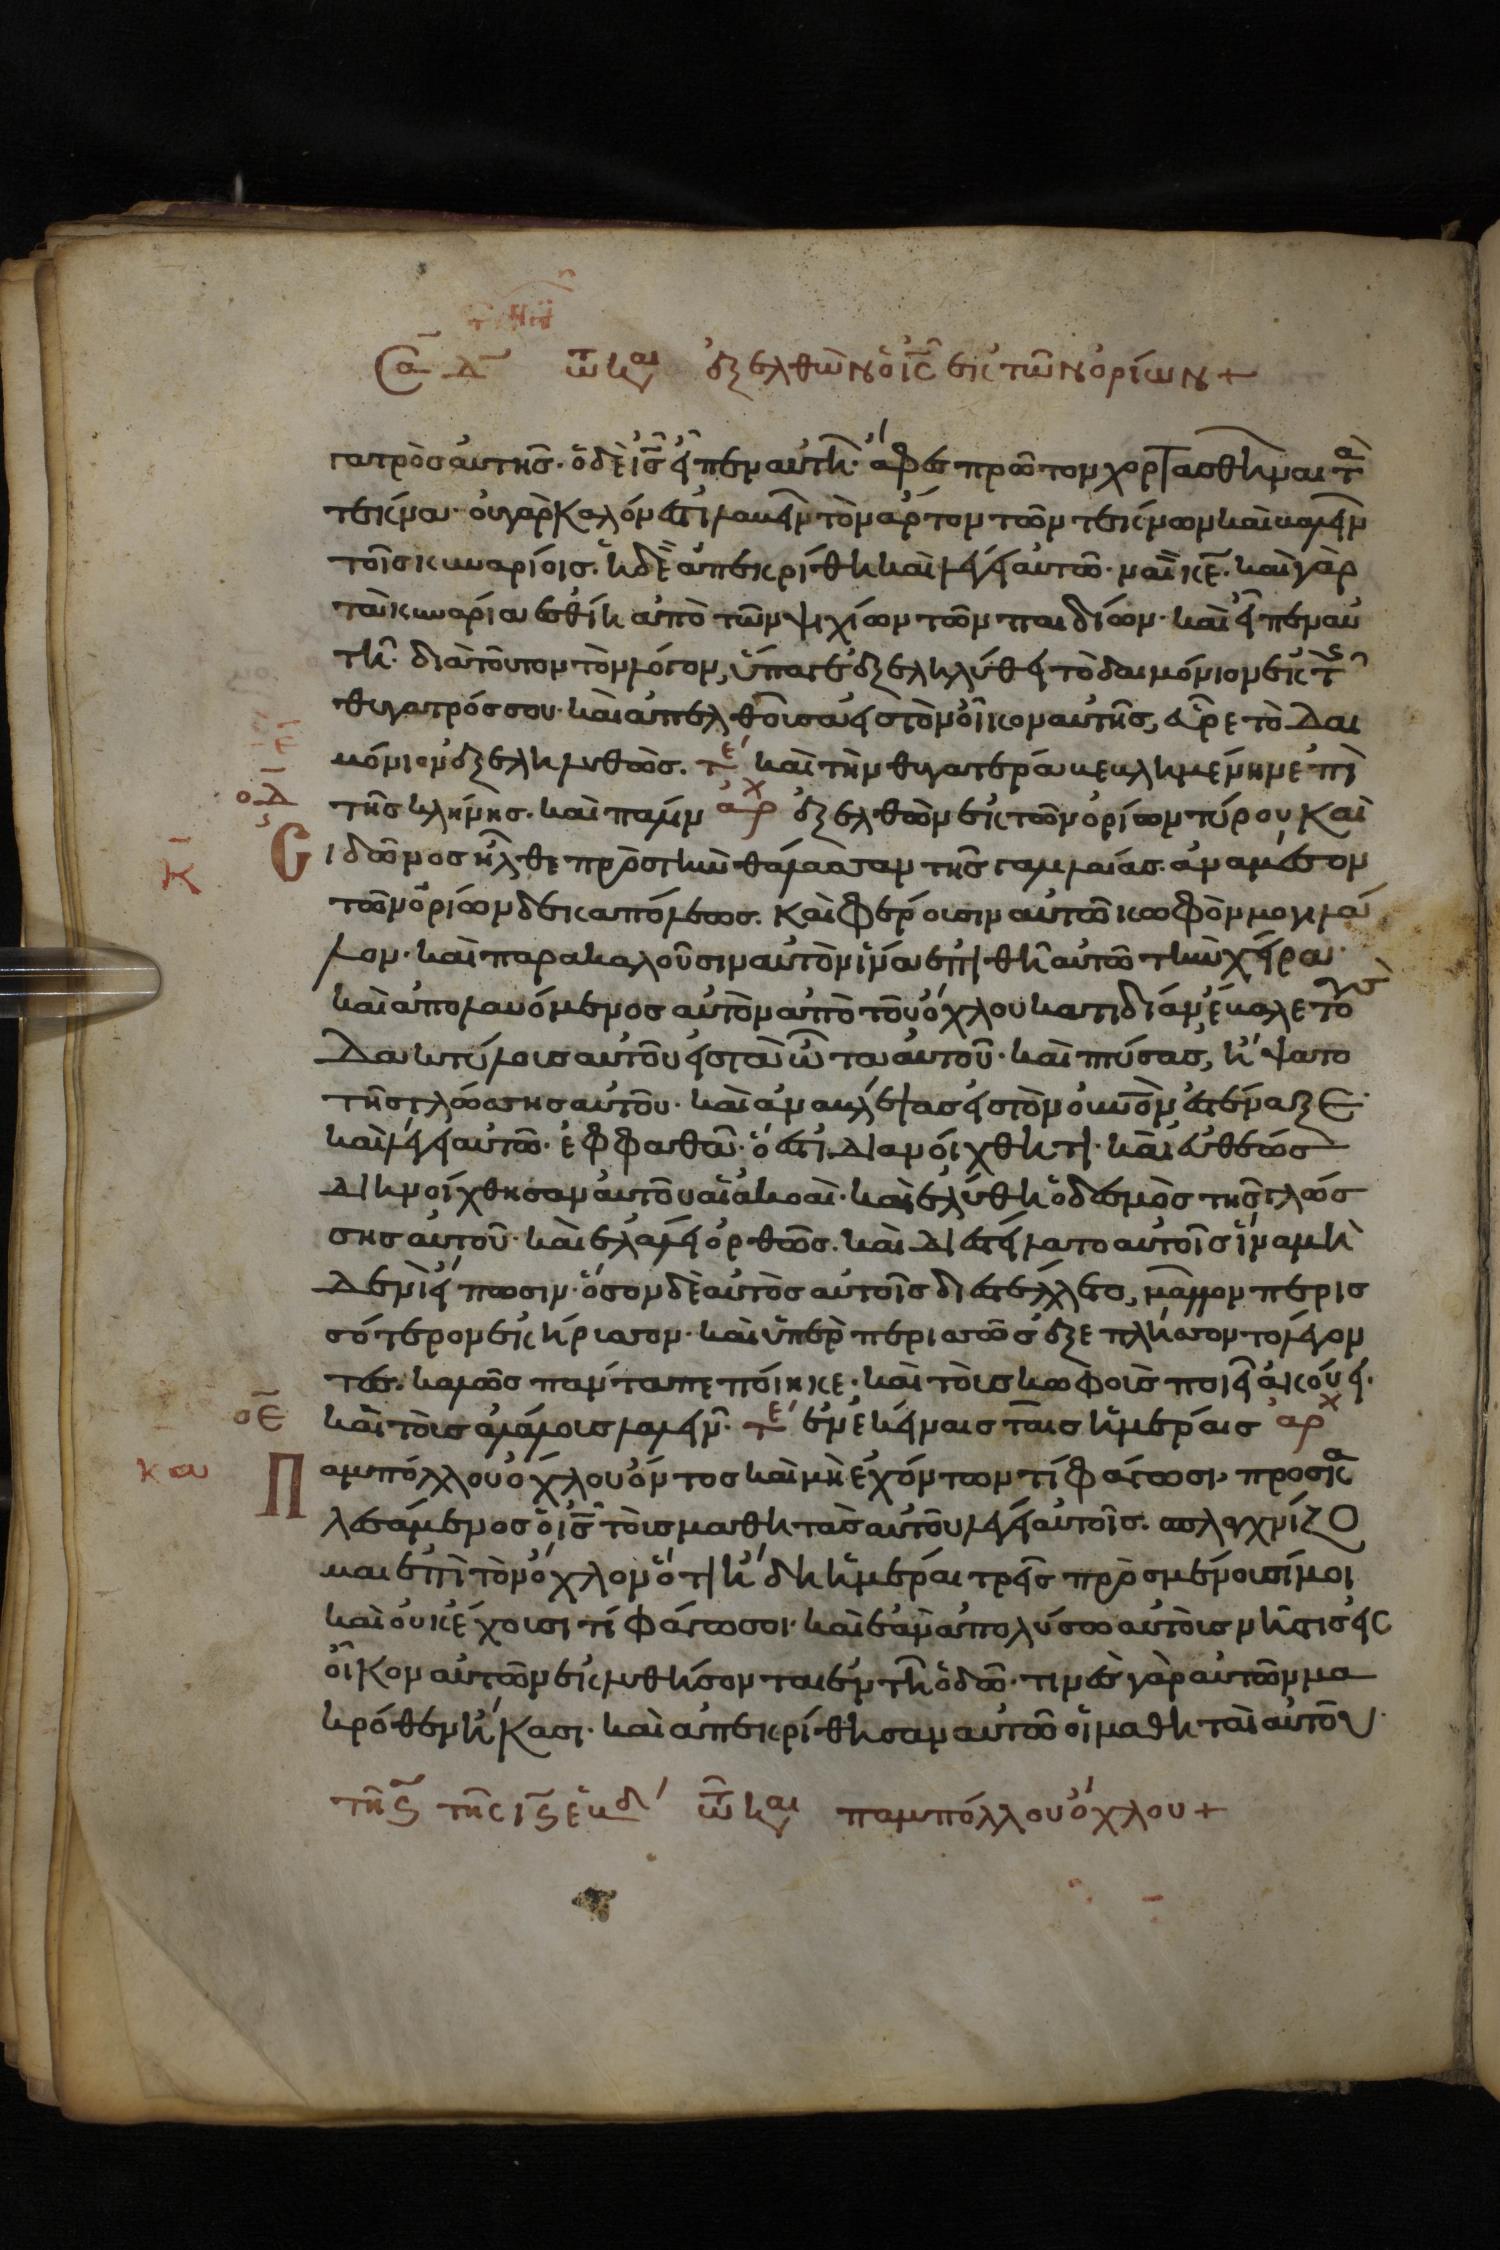 Σα Δ τῶ και ἐξελθὼν ὁ ις̅ ἐκ τῶν ὁρίων +
γατρὸς αὐτῆς. ὁ δὲ ις̅ εἶπεν αὐτῆ. ἄφες πρῶτον χορτασθῆναι τὰ
τέκνα. οὐ γὰρ καλόν ἐστι λαβεῖν τὸν ἄρτον τῶν τέκνων καὶ βαλεῖν
τοῖς κυναρίοις. ἡ δὲ ἀπεκρίθη καὶ λέγει αὐτῶ. ναὶ κε̅. καὶ γὰρ
τὰ κυνάρια ἐσθίει ἀπὸ τῶν ψιχίων τῶν παιδίων. καὶ εἶπεν αὐ
τῆ. διὰ τοῦτον τὸν λόγον, ὕπαγε ἐξελήλυθε τὸ δαιμόνιον ἐκ τῆς
θυγατρός σου. καὶ ἀπελθοῦσα εἰς τὸν οἶκον αὐτῆς, εὗρε τὸ δαι
μόνιον ἐξεληλυθὼς. τε καὶ τὴν θυγατέρα βεβλημένην ἐπὶ
οδ τῆς κλήνης. καὶ πάλιν ἀρχ ἐξελθὼν ἐκ τῶν ὁρίων τύρου καὶ
κ Σιδῶνος ἦλθε πρὸς τὴν θάλασσαν τῆς γαλιλαίας. ἀνα μέσον
τῶν ὁρίων δεκαπόλεως. καὶ φέρουσιν αὐτῶ κωφὸν μογιλά
λον. καὶ παρακαλοῦσιν αὐτὸν ἵνα ἐπιθῆ αὐτῶ τὴν χεῖρα.
καὶ ἀπολαβόμενος αὐτὸν ἀπὸ τοῦ ὄχλου κατιδίαν ἔβαλε τοὺς
δακτύλους αὐτοῦ εἰς τὰ ὦτα αὐτοῦ. καὶ πτύσας, ἥψατο
τῆς γλώσσης αὐτοῦ. καὶ ἀναβλέψας εἰς τὸν οὐνὸν ἐστέναξε.
καὶ λέγει αὐτῶ. ἐφφαθα. ὅ ἐστι διανοίχθητι. καὶ εὐθέως
διηνοίχθησαν αὐτοῦ αἱ ἀκοαὶ. καὶ ἐλύθη ὁ δεσμὸς τῆς γλώσ
σης αὐτοῦ. καὶ ἐλάλει ὀρθῶς. καὶ διεστείλατο αὐτοῖς ἵνα μη
δενὶ εἴπωσιν. ὅσον δὲ αὐτὸς αὐτοῖς διεστέλλετο, μᾶλλον περισ
σότερον ἐκήρυσσον. καὶ ὑπερπερισσῶς ἐξεπλήσσοντο λέγον
τες. καλῶς πάντα πεποίηκε. καὶ τοὺς κωφοὺς ποιεῖ ἀκούειν.
οε καὶ τοὺς ἀλάλους λαλεῖν. τε ἐν ἐκείναις ταῖς ἡμέραις ἀρχ
κα Παμπόλλου ὄχλου ὄντος καὶ μὴ ἐχόντων τί φάγωσι. προσκα
λεσάμενος ὁ ις̅ τοὺς μαθητὰς αὐτοῦ λέγει αὐτοῖς. σπλαγχνίζο
μαι ἐπὶ τὸν ὄχλον ὅτι ἤδη ἡμέραι τρεῖς προσμένουσί μοι
καὶ οὐκ ἔχουσι τί φάγωσοι. καὶ ἐὰν ἀπολύσω αὐτοὺς νήστις εἰς
οἶκον αὐτῶν ἐκλυθήσονται ἐν τῆ ὁδῶ. τινὲς γὰρ αὐτῶν μα
κρόθεν ἥκασι. καὶ ἀπεκρίθησαν αὐτῶ οἱ μαθηταὶ αὐτοῦ.
τῆς τῆς ις̅ ἑβδ τῶ και παμπόλλου ὄχλου +